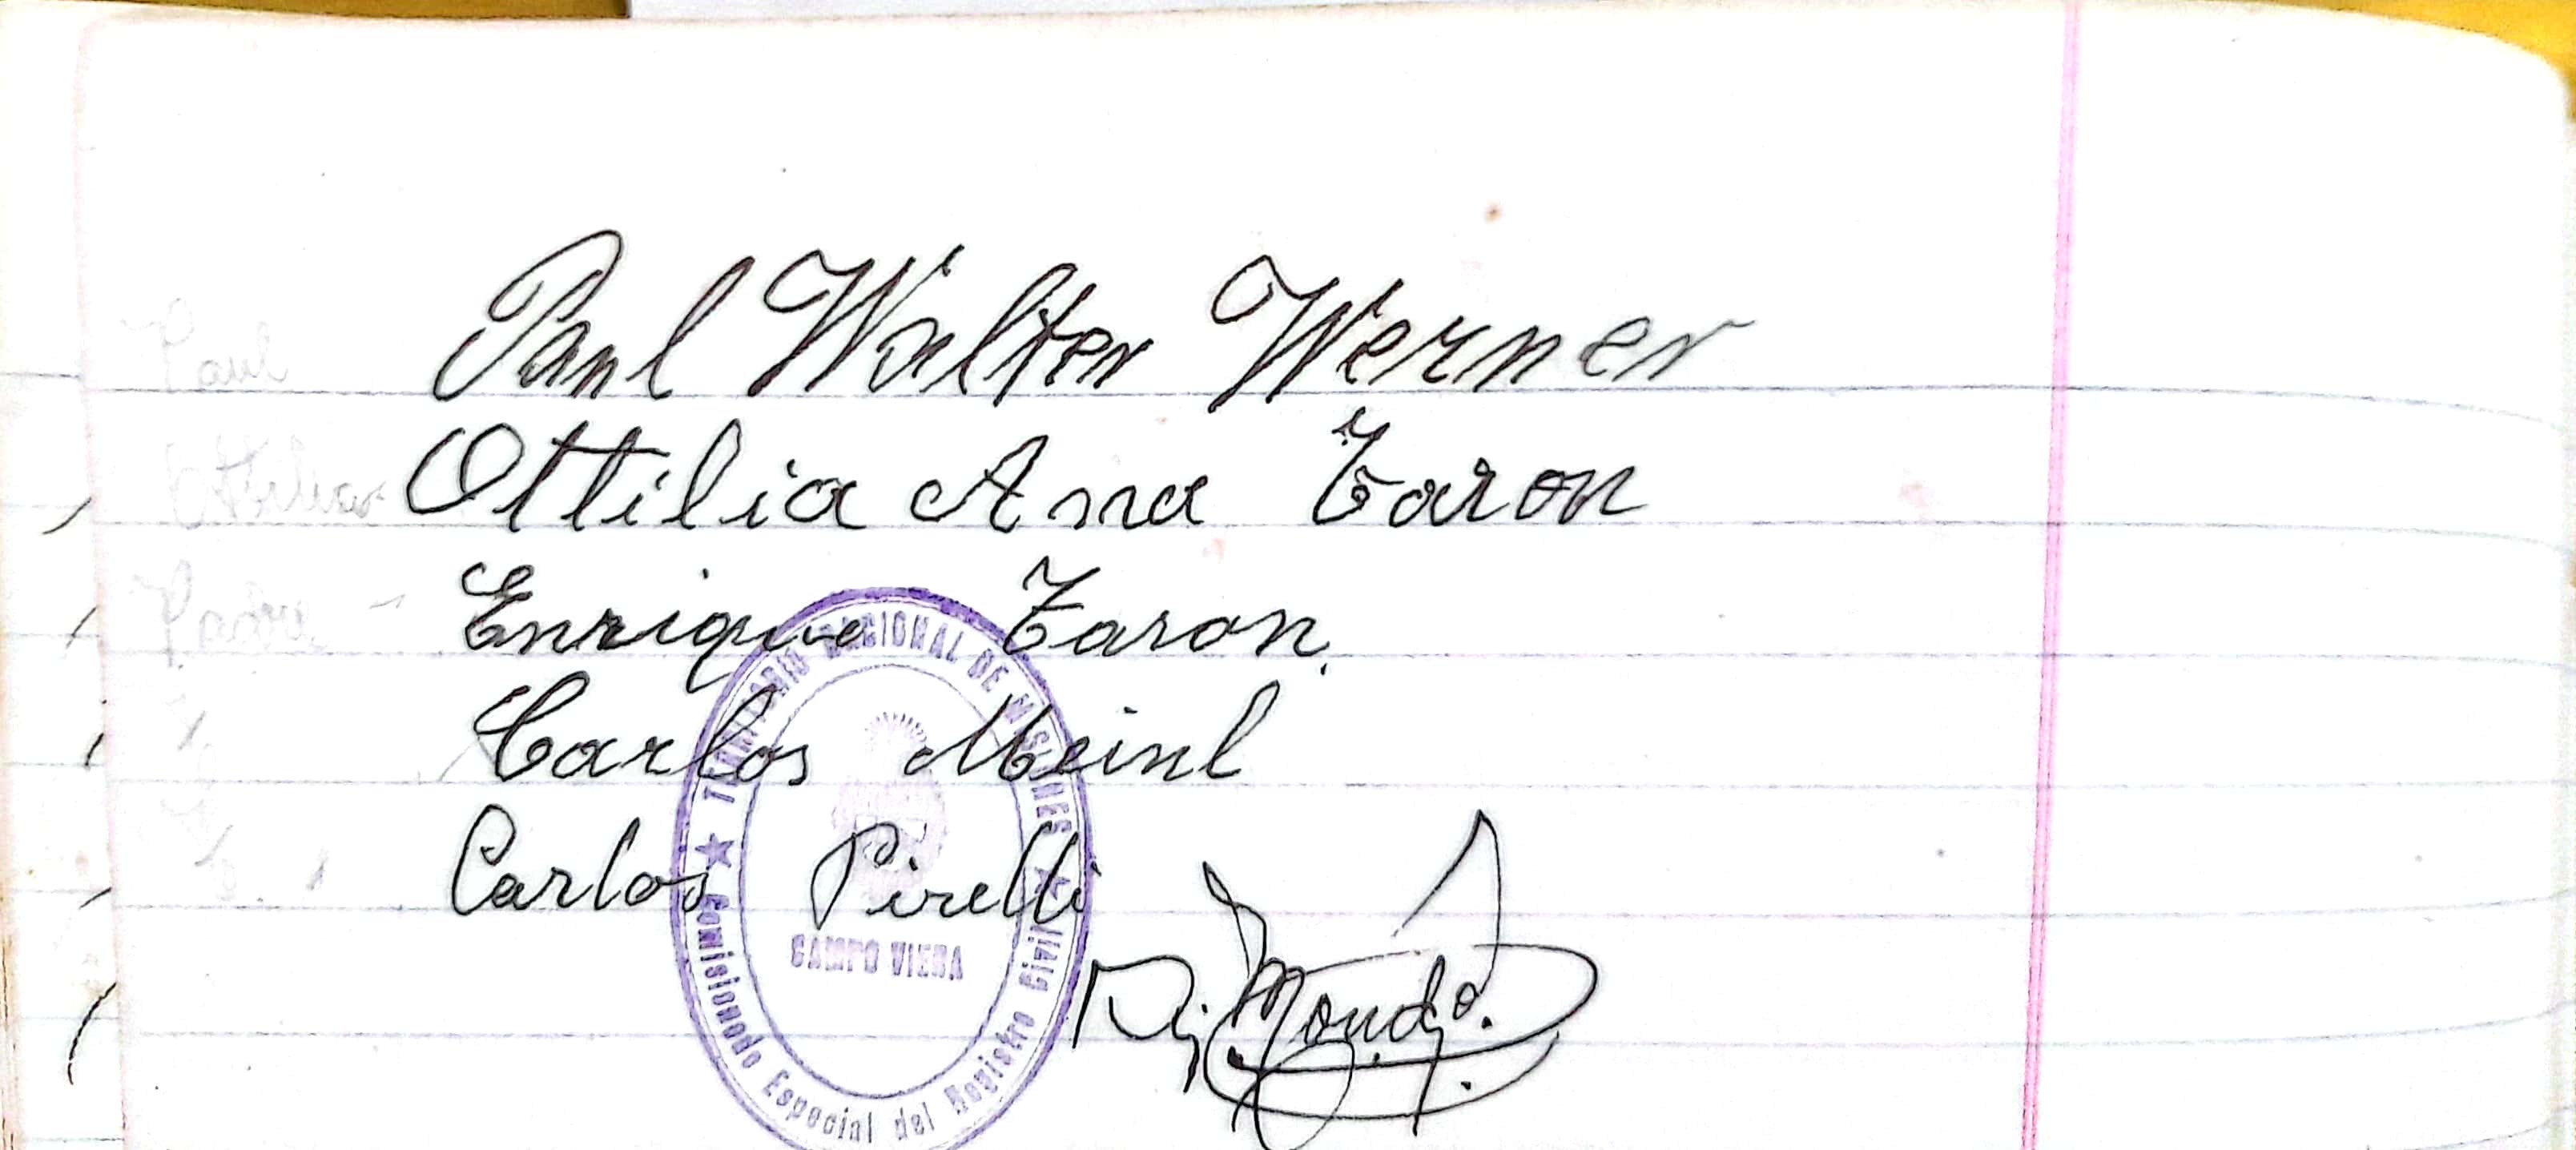 Paul Paul Walter Werner
Ottilia Ana Taron
Padre - Enrique Taron.
Carlos Meinl
Carlos Pirelli
★ TERRITORIO NACIONAL DE MISIONES ★
CAMPO VIERA
Comisionado Especial del Registro Civil